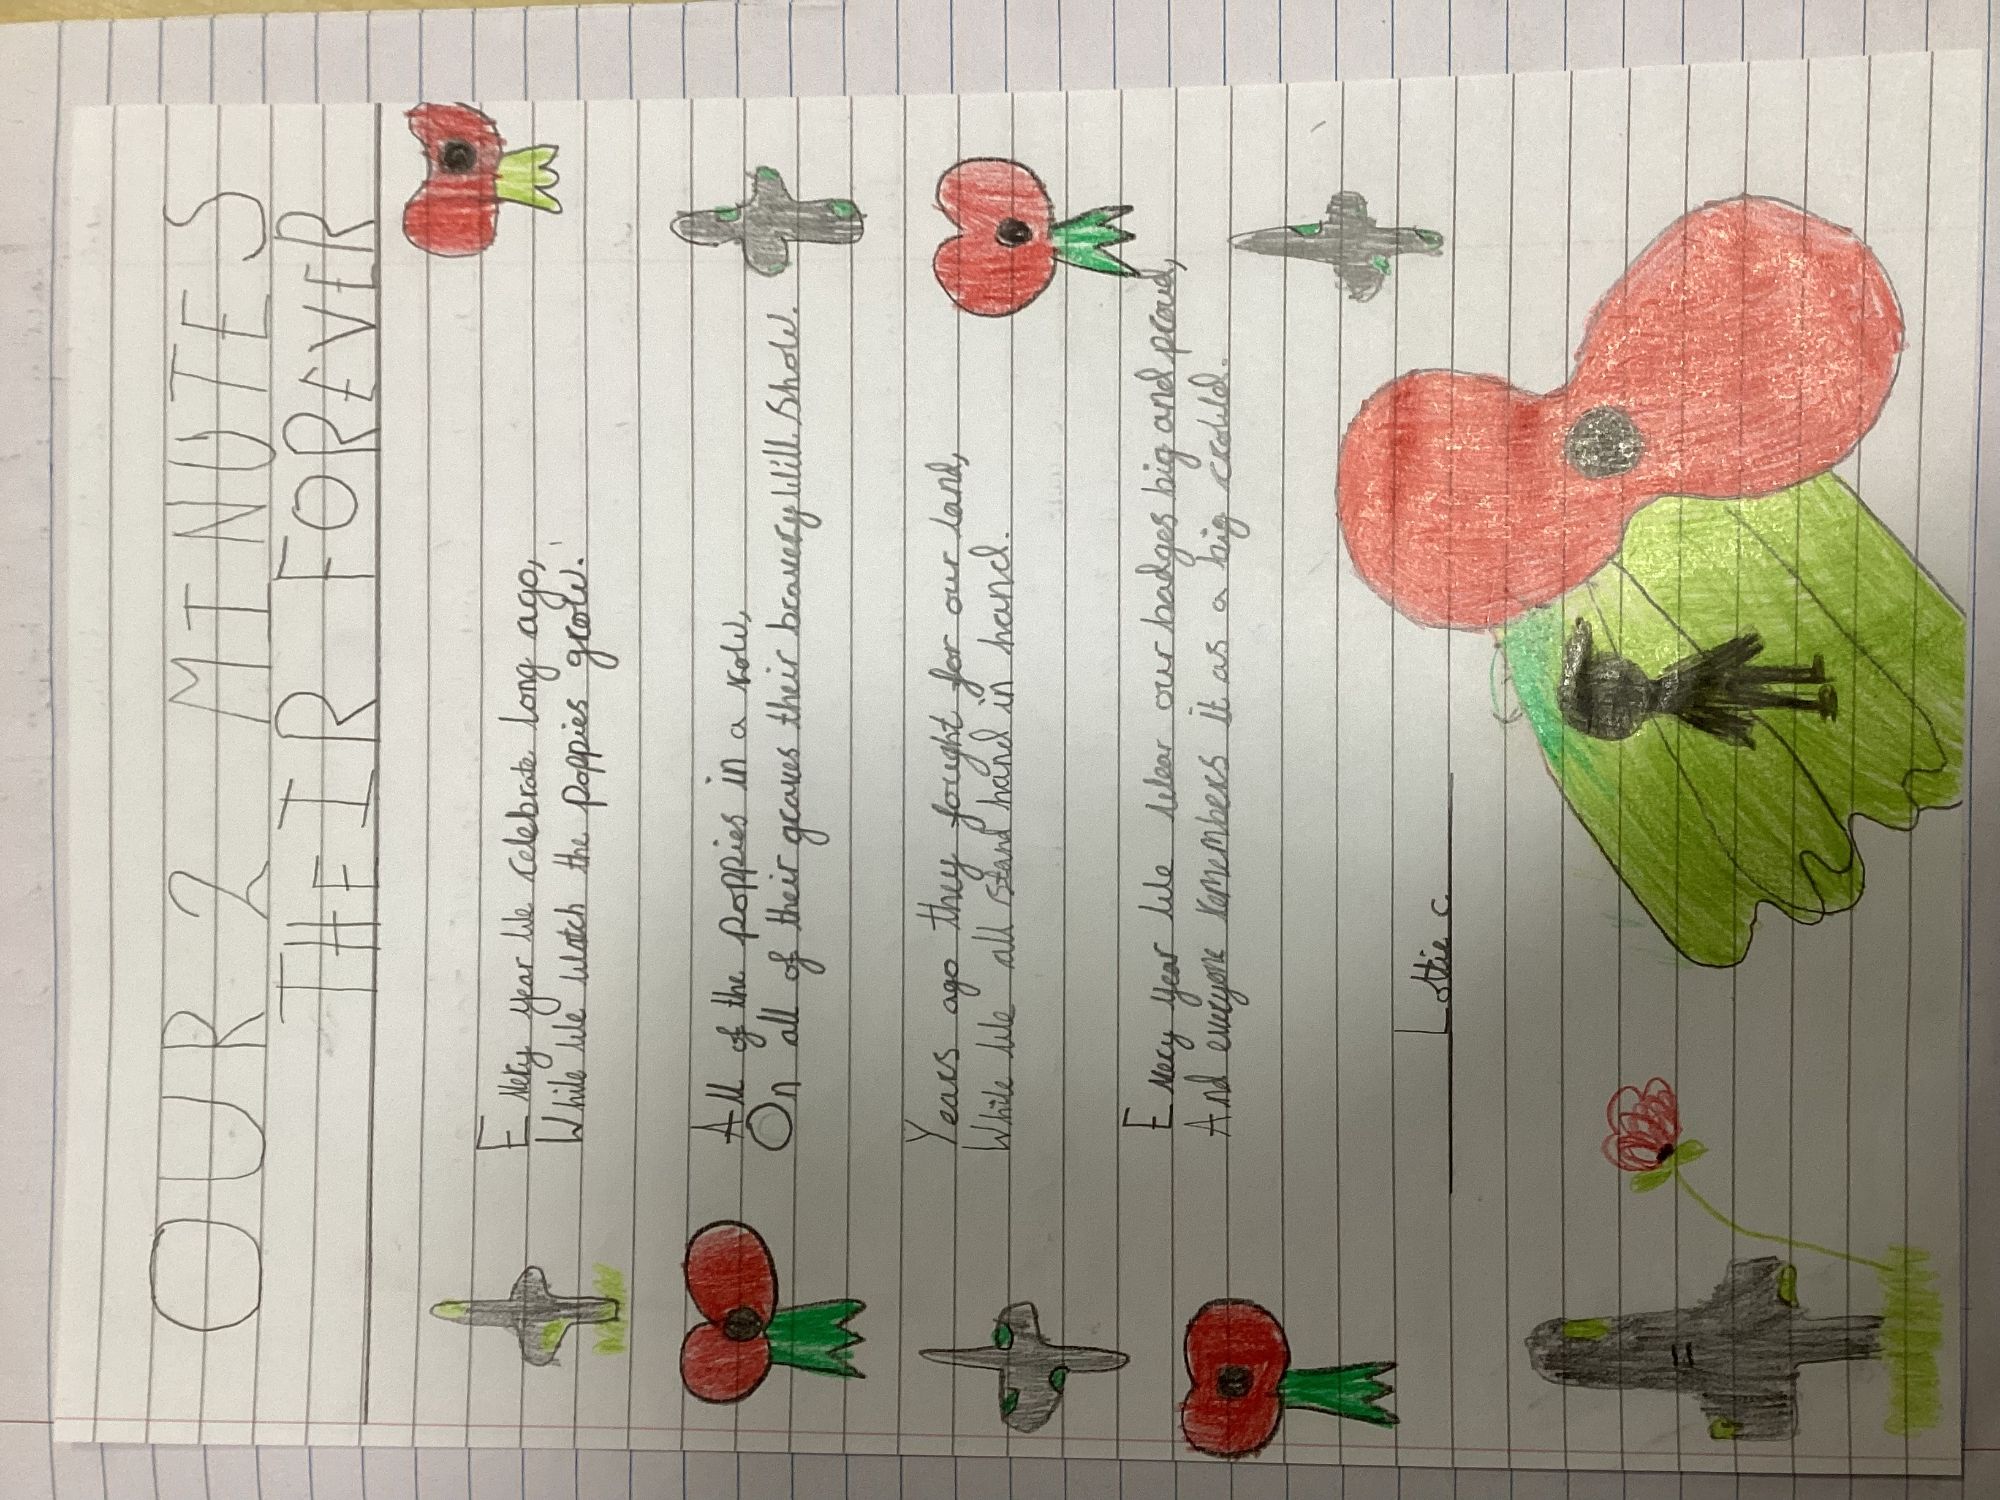 OUR 2 MINUTES
THEIR FOREVER
Every year we celebrate long ago,
While we watch the poppies grow.
All of the poppies in a row,
On all of their graves their bravery will show.
Years ago they fought for our land,
While we all stand hand in hand.
Every year we wear our badges big and proud,
And everyone remembers it as a big crowd.
Lottie C